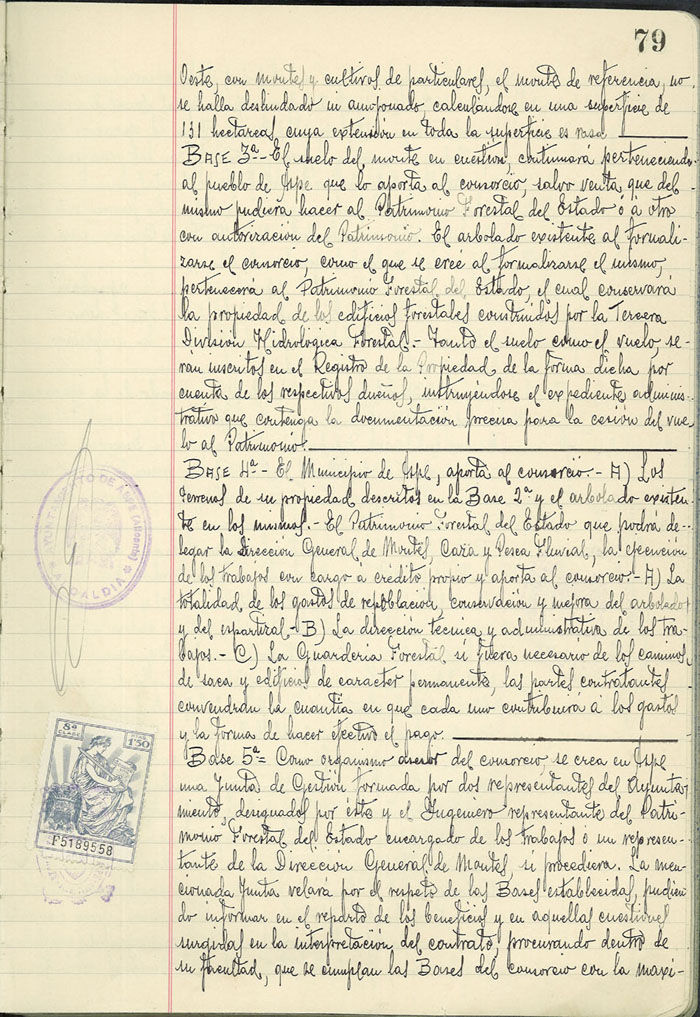 79
Oeste, con montes y cultivos de particulares, el monte de referencia, no
se halla deslindado ni amojonado, calculándose en una superficie de
131 hectareas, cuya extensión en toda la superficie es rasa.
BASE 3ª.- El suelo del monte en cuestión, continuará perteneciendo
al pueblo de Aspe que lo aporta al consorcio, salvo venta, que del
mismo pudiera hacer al Patrimonio Forestal del Estado ó a otro
con autorización del Patrimonio. El arbolado existente al formali-
zarse el consorcio, como el que se cree al formalizarse el mismo,
pertenecerá al Patrimonio Forestal del Estado, el cual conservará
la propiedad de los edificios forestales construidos por la Tercera
División Hidrológica Forestal.- Tanto el suelo como el vuelo, se-
rán inscritos en el Registro de la Propiedad de la forma dicha por
cuenta de los respectivos dueños, instruyéndose el expediente adminis-
trativo que contenga la documentación precisa para la cesión del vue-
lo al Patrimonio.
BASE 4ª.- El Municipio de Aspe, aporta al consorcio.- A) Los
terrenos de su propiedad descritos en la Base 2ª y el arbolado existen-
te en los mismos.- El Patrimonio Forestal del Estado que podrá de-
legar la Dirección General de Montes, Caza y Pesca Fluvial, la ejecución
de los trabajos con cargo á crédito propio y aporta al consorcio.- A) La
totalidad de los gastos de repoblación, conservación y mejora del arbolado
y del espartizal.- B) La dirección técnica y administrativa de los tra-
bajos.- C) La Guarderia Forestal si fuera necesario de los caminos
de saca y edificios de caracter permanente, las partes contratantes
convendrán la cuantia en que cada uno contribuirá á los gastos
y la forma de hacer efectivo el pago.
Base 5ª= Como organismo asesor del consorcio, se crea en Aspe
una Junta de Gestión formada por dos representantes del Ayunta-
miento, designados por éste y el Ingeniero representante del Patri-
monio Forestal del Estado encargado de los trabajos ó un represen-
tante de la Direccion General de Montes, si procediera. La men-
cionada Junta velara por el respeto de las Bases establecidas, pudien-
do informar en el reparto de los beneficios y en aquellas cuestiones
surgidas en la interpretación del contrato, procurando dentro de
su facultad, que se cumplan las Bases del consorcio con la maxi-
AYUNTAMIENTO DE ASPE (Alicante)
* ALCALDIA *
8ª
CLASE
1'50
F5189558